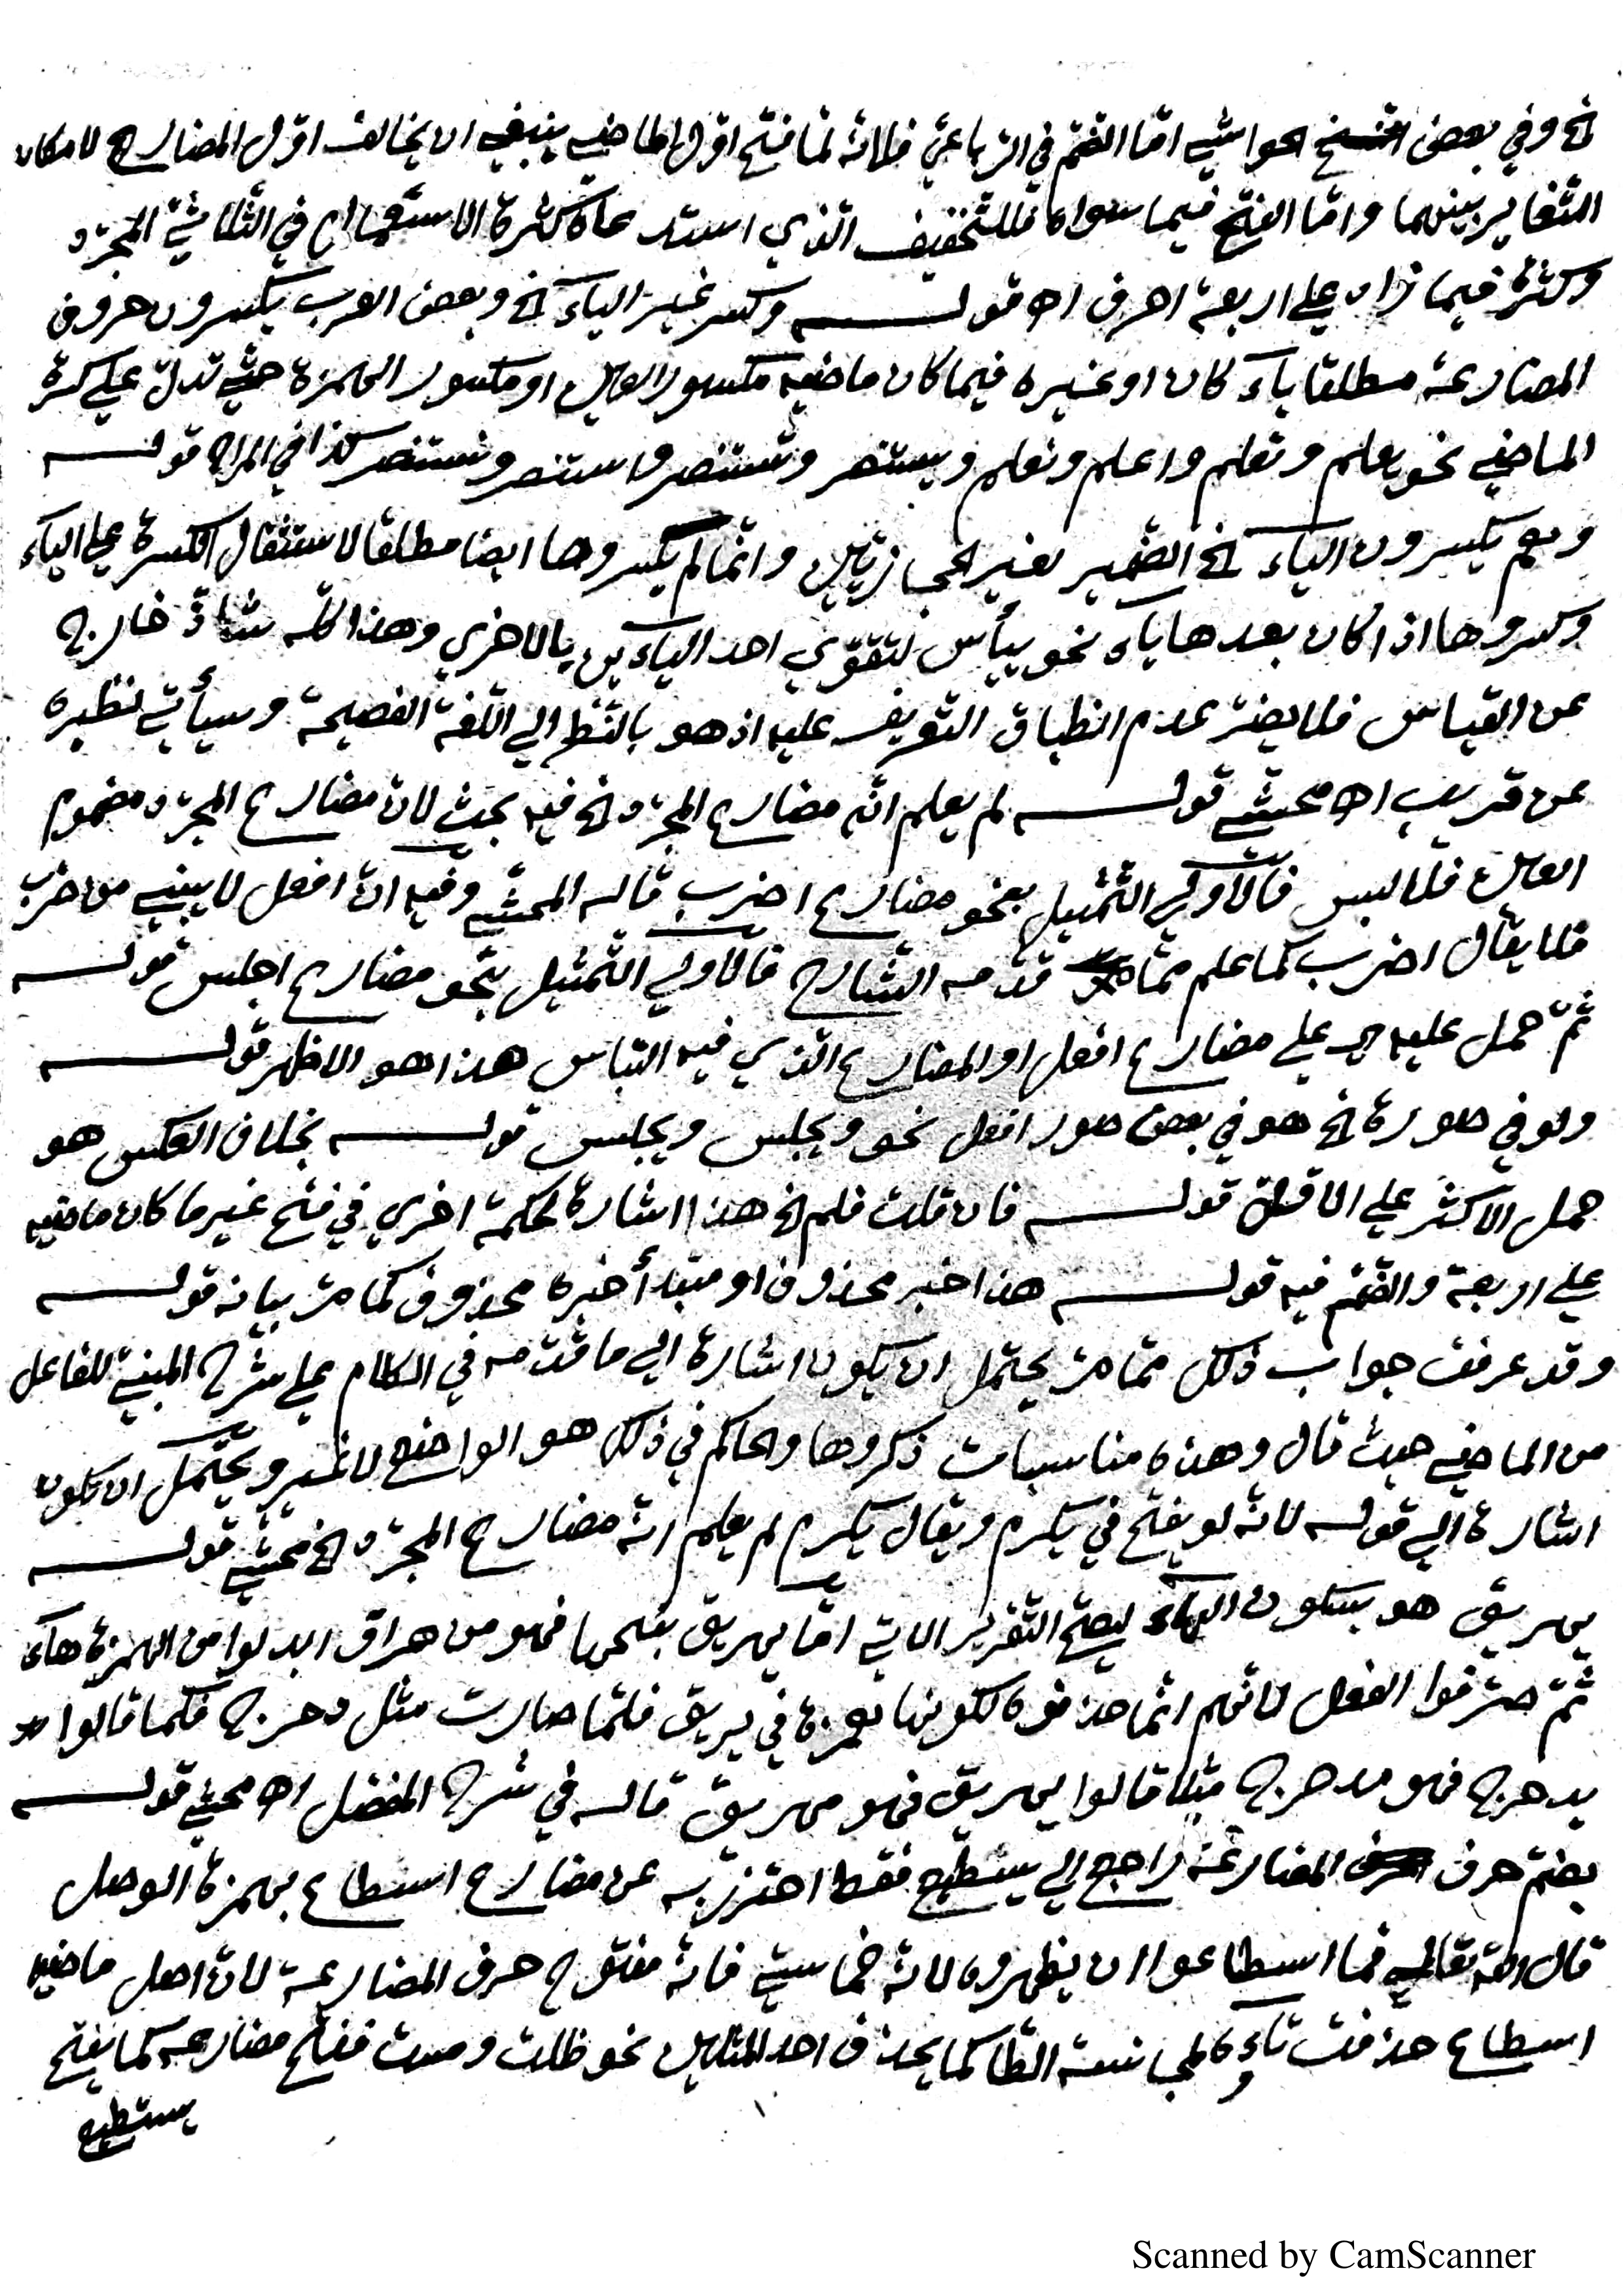 الخ وفي بعض الحواشي امّا الضّمّ في الرّباعيّ فلانّه لمّا فتح اوّل الماضي ينبغي ان يخالف اوّل المضارع لامكان
التّغاير بينهما وامّا الفتح فيما سواه فللتّخفيف الّذي استدعاه كثرة الاستعمال في الثّلاثيّ المجرّد
وكثرة فيما زاد علي اربعة احرف اه قوله وكسر غير الياء الخ وبعض العرب يكسرون حروف
المضارعة مطلقا ياء كان او غيره فيما كان ماضيه مكسور العين او مكسور الهمزة حتّي تدلّ علي كسرة
الماضي نحو يعلم وتعلم واعلم ونعلم ويستنصر وتستنصر واستنصر ونستنصر كذا في المراح قوله
وهم يكسرون الياء الخ الضّمير لغير الحجازيّين وانّما لم يكسروها ايضا مطلقا لاستثقال الكسرة علي الياء
وكسروها اذا كان بعدها ياء نحو ييأس لتقوّي احد الياءين بالاخري وهذا كلّه شاذّ خارج
عن القياس فلا يضرّ عدم انطباق التّعريف عليه اذ هو بالنّظر الي اللّغة الفصيحة وسيأتي نظيره
عن قريب اه محشّي قوله لم يعلم انّه مضارع المجرّد الخ فيه بحث لانّ مضارع المجرّد مضموم
العين فلا لبس فالاولي التّمثيل بنحو مضارع اضرب قاله المحشّي وفيه انّ افعل لا يبني من ضرب
فلا يقال اضرب كما علم ممّا قدّمه الشّارح فالاولي التّمثيل بنحو مضارع اجلس قوله
ثمّ حمل عليه اي علي مضارع افعل او المضارع الّذي فيه التباس هذا هو الاظهر قوله
ولو في صورة الخ هو في بعض صور افعل نحو ويجلس ويجلس قوله بخلاف العكس هو
حمل الاكثر علي الاقلّ قوله فان قلت فلم الخ هذا اشارة لحكمة اخري في فتح غير ما كان ماضيه
علي اربعة والضّمّ فيه قوله هذا خبر محذوف او مبتدأ خبره محذوف كما مرّ بيانه قوله
وقد عرفت جواب ذلك ممّا مرّ يحتمل ان يكون اشارة الي ما قدّمه في الكلام علي شرح المبنيّ للفاعل
من الماضي حيث قال وهذه مناسبات ذكروها والحاكم في ذلك هو الواضع لا غير ويحتمل ان يكون
اشارة الي قوله لانّه لو يفتح في يكرم ويقال يكرم لم يعلم انّه مضارع المجرّد الخ محشّي قوله
يهريق هو بسكون الهاء ليصحّ التّقرير الاتي امّا يهريق بفتحها فهو من هراق ابدلوا من الهمزة هاء
ثمّ صرّفوا الفعل لانّهم انّما حذفوه لكونها همزة في يريق فلمّا صارت مثل دحرج فكما قالوا
يدحرج فهو مدحرج مثلا قالوا يهريق فهو مهريق قاله في شرح المفصّل اه محشّي قوله
بضمّ حرف المضارعة راجع الي يسطيع فقط احترز به عن مضارع اسطاع بهمزة الوصل
قال اللّه تعالي فما اسطاعوا ان يظهروه لانّه خماسيّ فانّه مفتوح حرف المضارعة لانّ اصل ماضيه
اسطاع حذفت تاءه لمجانسة الطّا كما يحذف احد المثلين نحو ظلت ومست ففتح مضارعه كما يفتح
يستطيع
Scanned by CamScanner